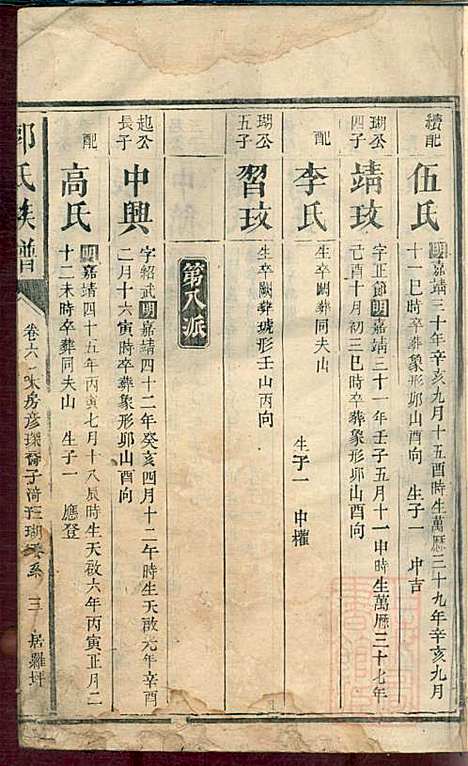 續配
伍氏
明嘉靖三十年辛亥九月十五酉時生萬曆三十九年辛亥九月
十一巳時卒葬象形卯山酉向　生子一　中吉
瑚公四子
靖玟
字正節明嘉靖三十一年壬子五月十一申時生萬曆三十七年
己酉十月初三巳時卒葬象形卯山酉向
配
李氏
生卒闕葬同夫山
生子一　中權
瑚公五子
習玟
生卒闕葬琥形壬山丙向
第八派
起公長子
中興
字紹武明嘉靖四十二年癸亥四月十二午時生天啟元年辛酉
二月十六寅時卒葬象形卯山酉向
配
高氏
明嘉靖四十五年丙寅七月十八辰時生天啟六年丙寅正月二
十二未時卒葬同夫山　生子一　應登
郭氏族譜
卷六　大房彥琛裔子漪班瑚系　三　居羅坪